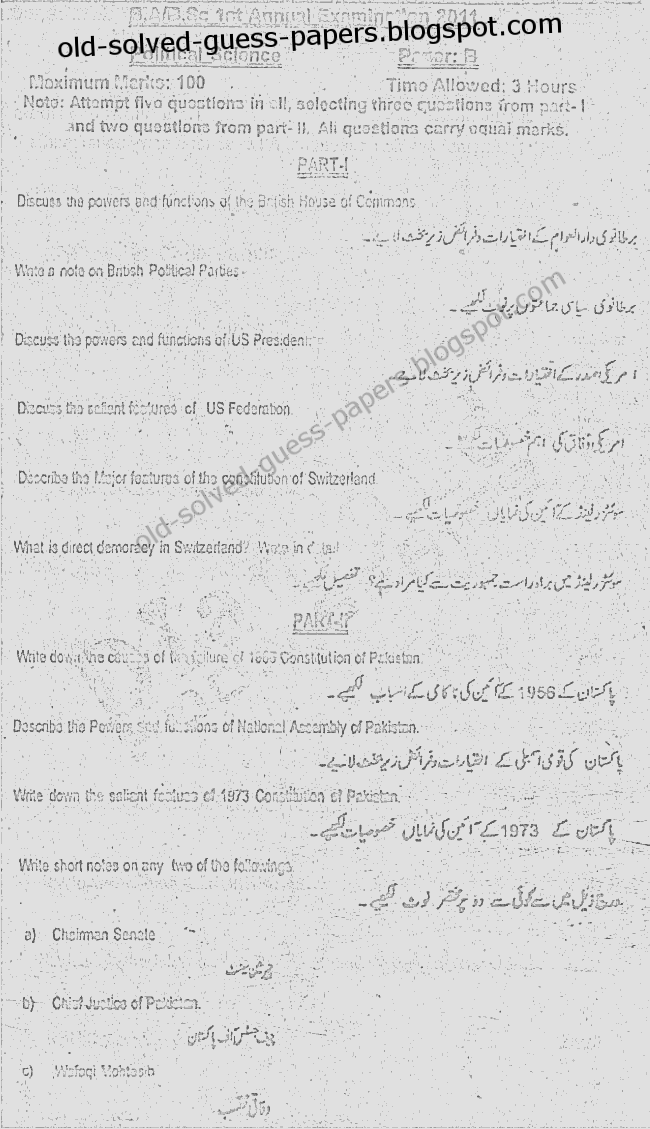 B.A/B.Sc 1st Annual Examination 2011
old-solved-guess-papers.blogspot.com
Political Science Paper: B
Maximum Marks: 100 Time Allowed: 3 Hours
Note: Attempt five questions in all, selecting three questions from part- I
and two questions from part- II. All questions carry equal marks.
PART-I
Discuss the powers and functions of the British House of Commons
برطانوی دارالعوام کے اختیارات و فرائض زیر بحث لائیے۔
Write a note on British Political Parties-
برطانوی سیاسی جماعتوں پر نوٹ لکھیے۔
Discuss the powers and functions of US President.
امریکی صدر کے اختیارات و فرائض زیر بحث لائیے۔
old-solved-guess-papers.blogspot.com
Discuss the salient features of US Federation.
امریکی وفاق کی اہم
Describe the Major features of the constitution of Switzerland.
سوئٹزرلینڈ کے آئین کی نمایاں خصوصیات لکھیے۔
What is direct democracy in Switzerland? Write in detail
سوئٹزرلینڈ میں براہ راست جمہوریت سے کیا مراد ہے؟ تفصیل
PART-II
Write down the causes of the failure of Constitution of Pakistan.
پاکستان کے 1956 کے آئین کی ناکامی کے اسباب لکھیے۔
Describe the Powers and functions of National Assembly of Pakistan.
پاکستان کی قومی اسمبلی کے اختیارات و فرائض زیر بحث لائیے۔
Write down the salient featues of 1973 Constitution of Pakistan.
پاکستان کے 1973 کے آئین کی نمایاں خصوصیات لکھیے۔
Write short notes on any two of the followings.
درج ذیل میں سے کوئی سے دو پر مختصر نوٹ لکھیے۔
a) Chairman Senate
چیئرمین سینٹ
b) Chief Justice of Pakistan.
چیف جسٹس آف پاکستان
c) Wafaqi Mohtasib
وفاقی محتسب